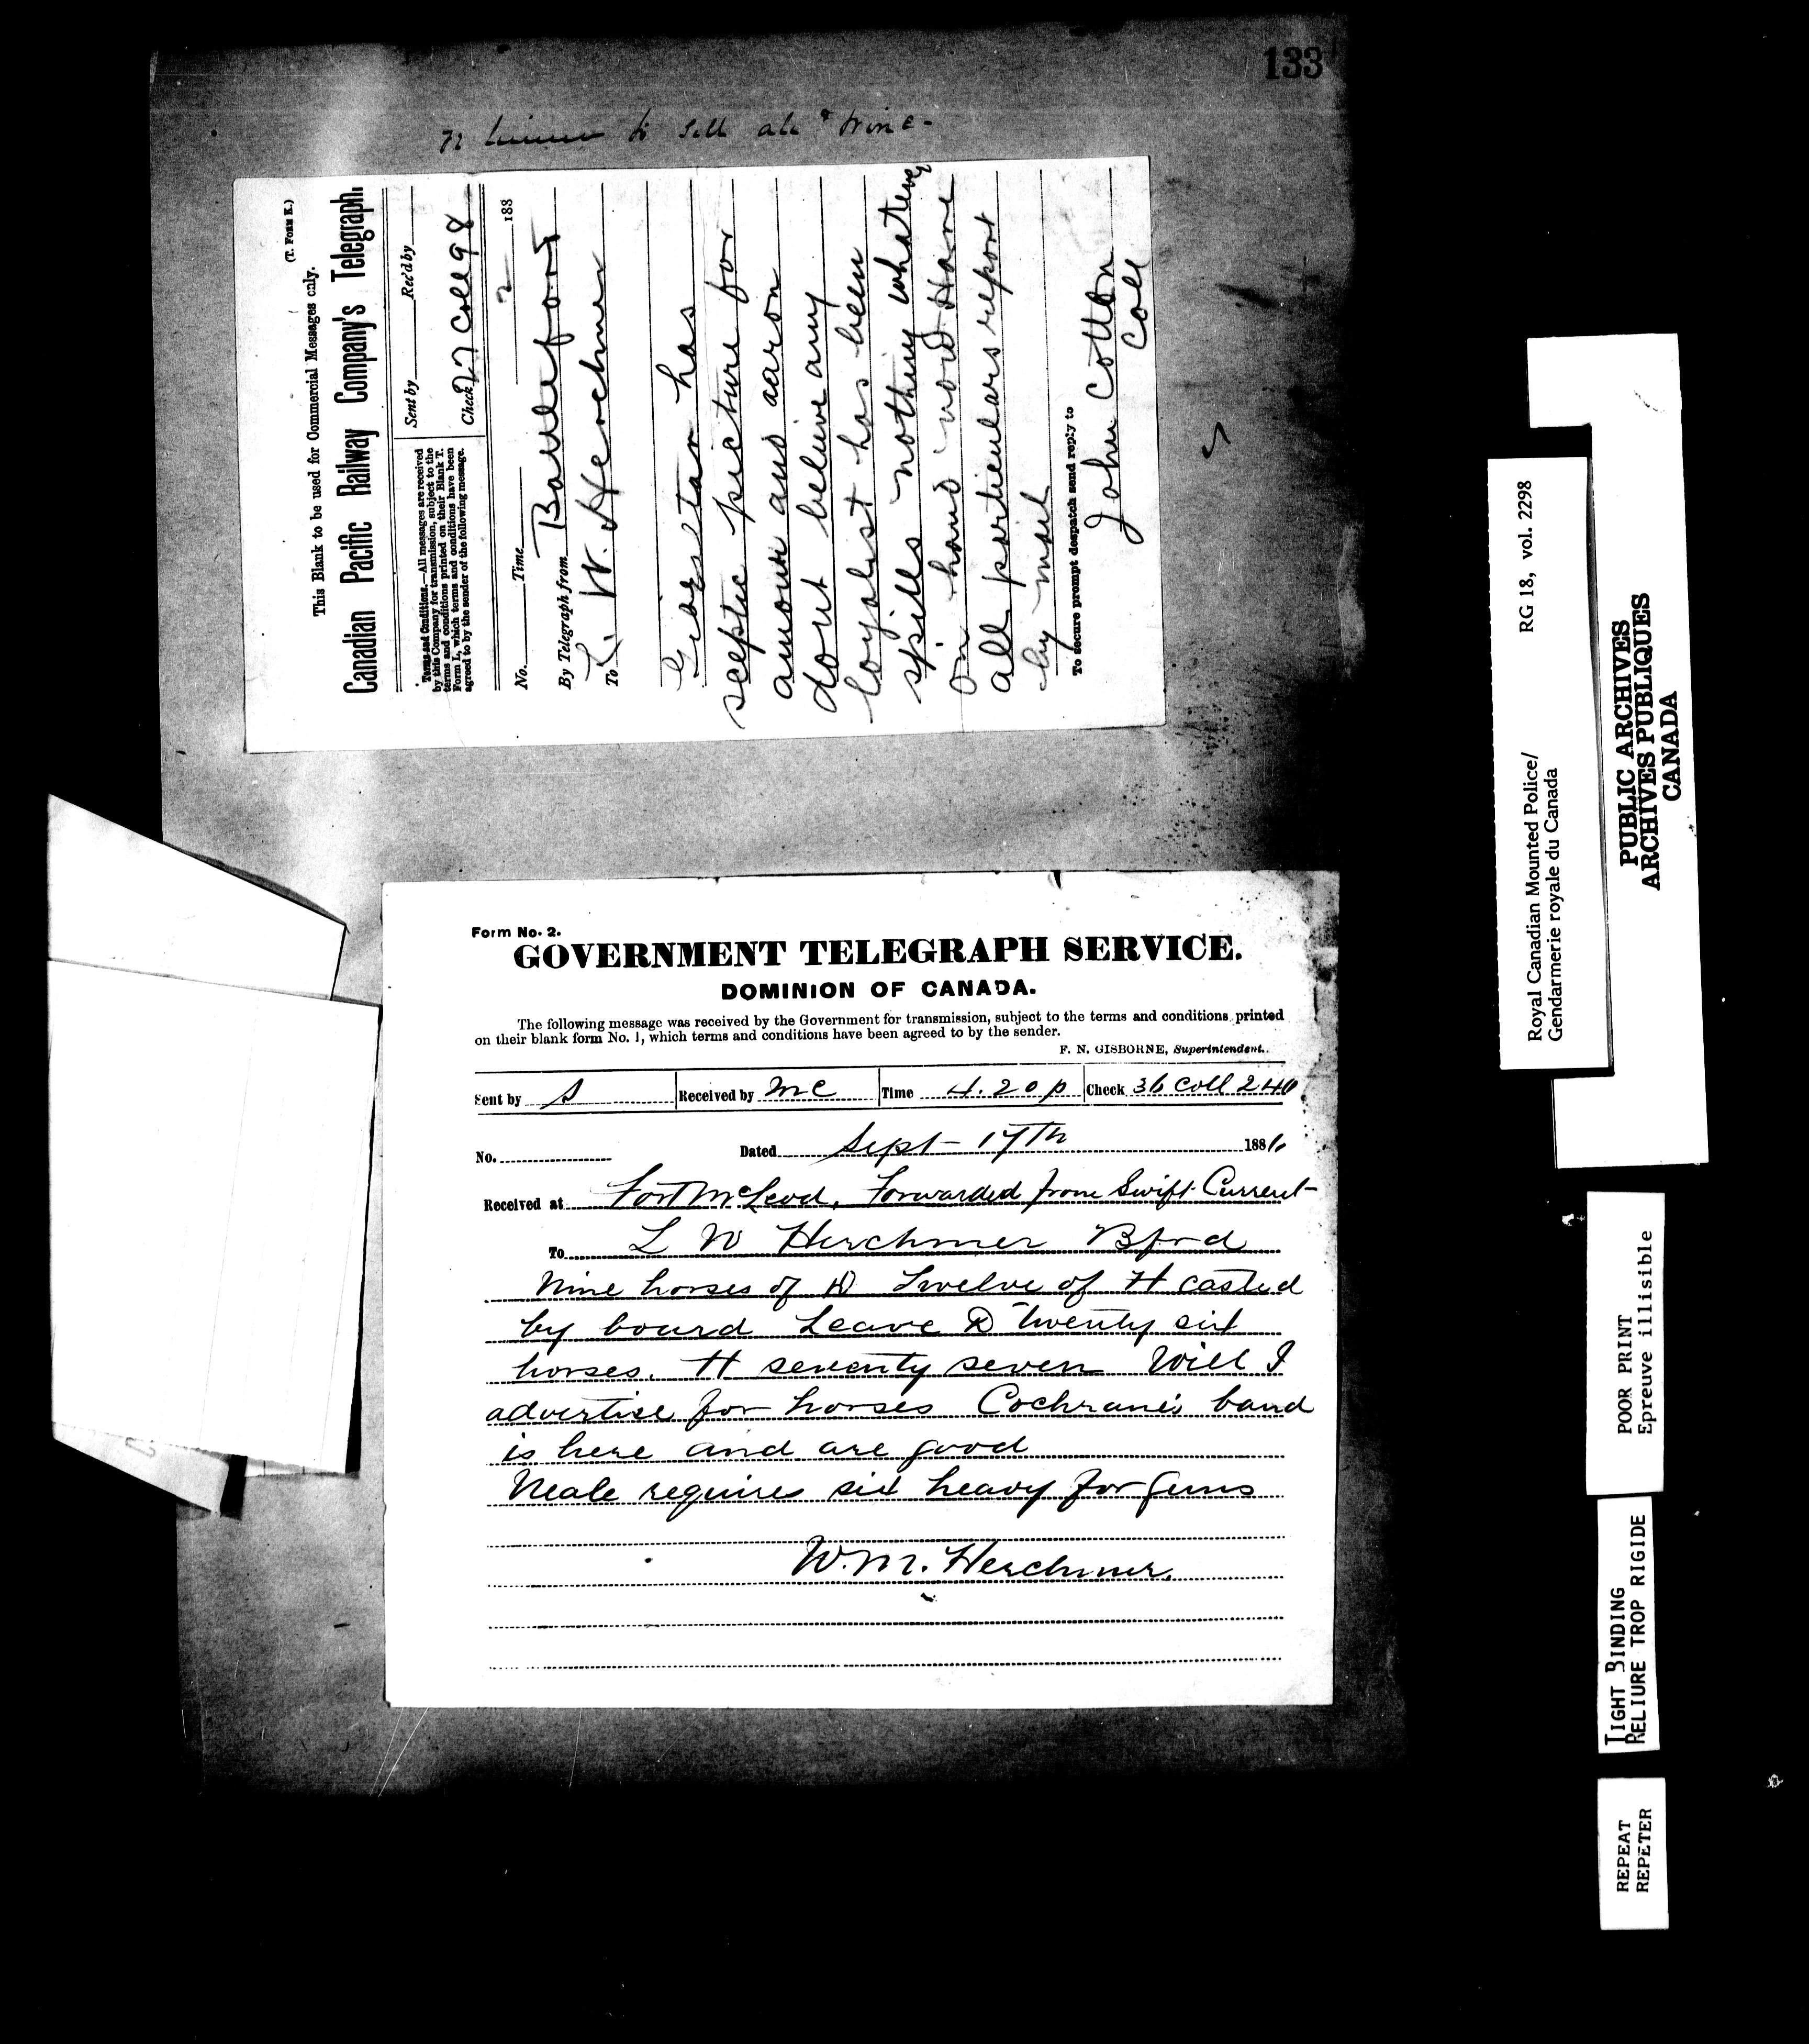 133
to sell ale & wine -
(T. FORM K.)
This Blank to be used for Commercial Messages only.
Canadian Pacific Railway Company's Telegraph.
Terms and Conditions.—All messages are received
by this Company for transmission, subject to the
terms and conditions printed on their Blank T.
Form I., which terms and conditions have been
agreed to by the sender of the following message.
Sent by Rec'd by
Check 27 Coll 98
No. Time 2 188
By Telegraph from Battleford
To L. W. Herchmer
has
sceptic picture for
armour and aaron
dont believe any
loyalist has been
spills nothing whatever
on hand word Have
all particulars report
by mail
To secure prompt despatch send reply to
John Cotton
Coll
Form No. 2.
GOVERNMENT TELEGRAPH SERVICE.
DOMINION OF CANADA.
The following message was received by the Government for transmission, subject to the terms and conditions printed
on their blank form No. 1, which terms and conditions have been agreed to by the sender.
F. N. GISBORNE, Superintendent.
Sent by S Received by MC Time 4.20 p Check 36 Coll 240
No. Dated Sept- 17th 1886
Received at Fort McLeod, Forwarded from Swift Current-
To L W Herchmer Bford
Nine horses of D Twelve of H casted
by board Leave D twenty six
horses. H seventy seven Will I
advertise for horses Cochrane's band
is here and are good
Neale requires six heavy for guns
W.M. Herchmer.
Royal Canadian Mounted Police/ RG 18, vol. 2298
Gendarmerie royale du Canada
PUBLIC ARCHIVES
ARCHIVES PUBLIQUES
CANADA
POOR PRINT
Epreuve illisible
TIGHT BINDING
RELIURE TROP RIGIDE
REPEAT
REPETER